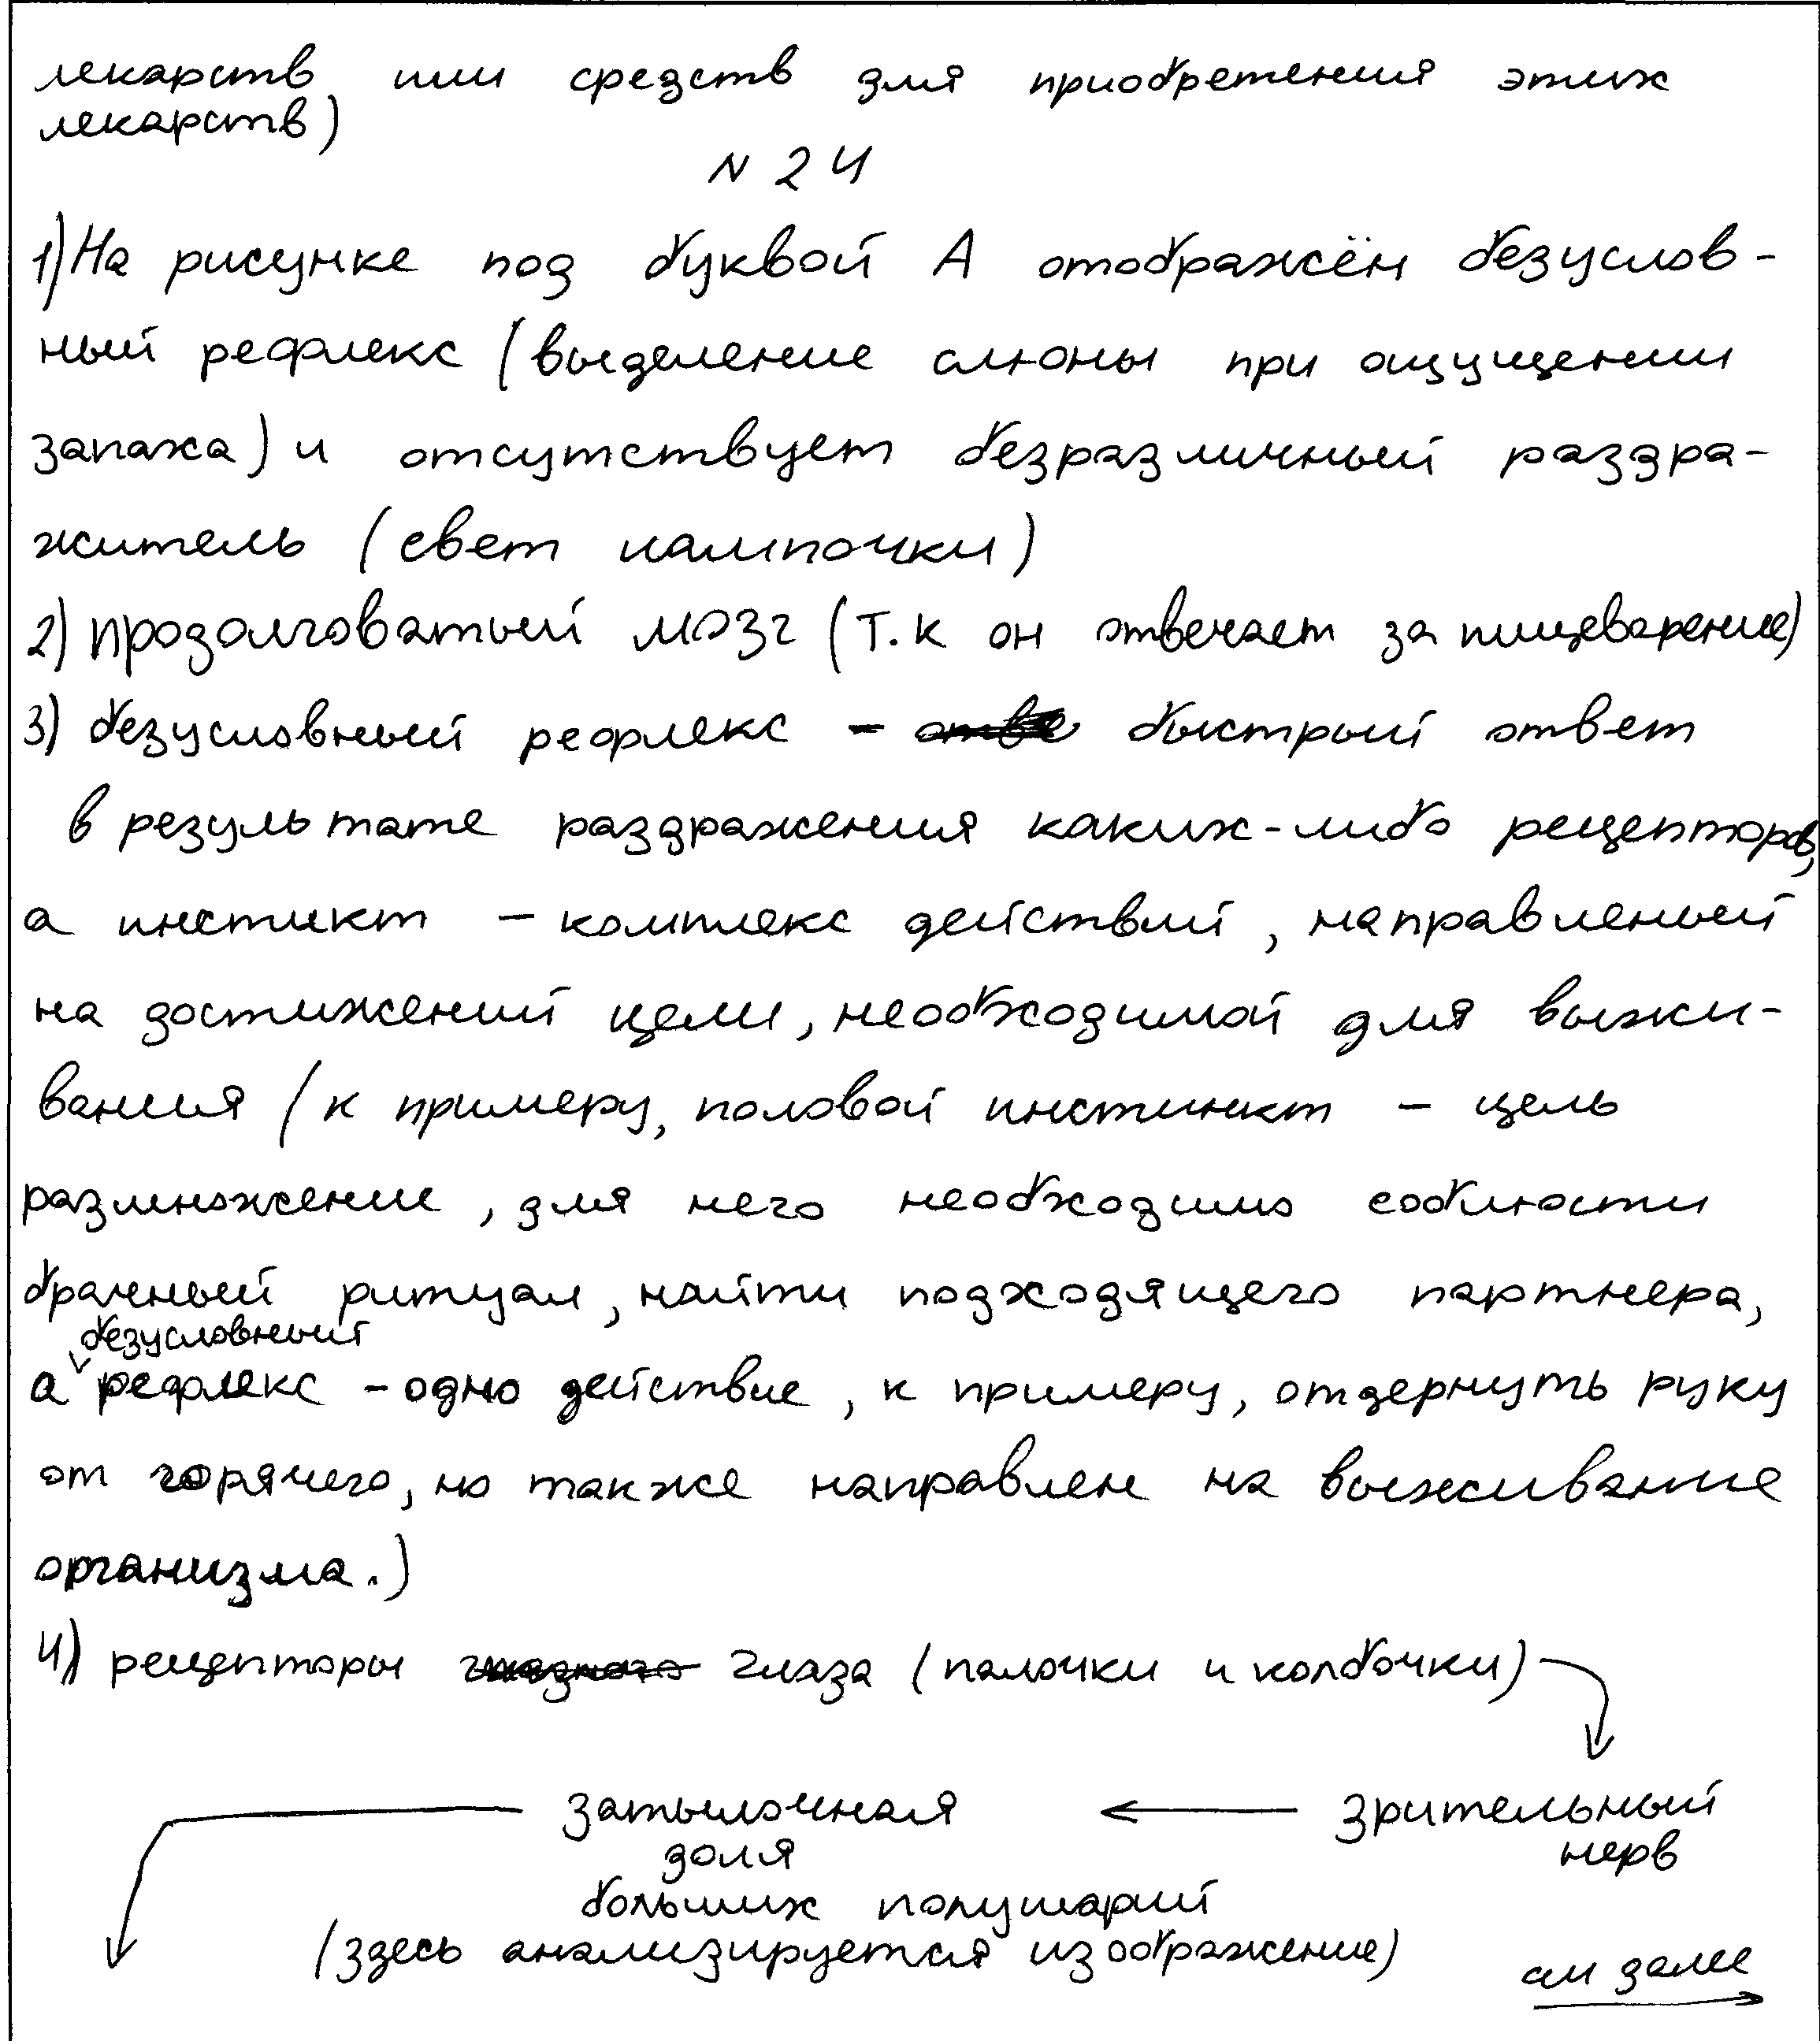 лекарств или средств для приобретения этих
лекарств)
N 24
1) На рисунке под буквой А отображён безуслов-
ный рефлекс (выделение слюны при ощущении
запаха) и отсутствует безразличный раздра-
житель (свет лампочки)
2) продолговатый мозг (т.к он отвечает за пищеварение)
3) безусловный рефлекс - быстрый ответ
в результате раздражения каких-либо рецепторов,
а инстикт - комплекс действий, направленый
на достижений цели, необходимой для выжи-
вания (к примеру, половой инстинкт - цель
размножение, для него необходимо соблюсти
брачный ритуал, найти подходящего партнера,
безусловный
а рефлекс - одно действие, к примеру, отдернуть руку
от горячего, но также направлен на выживание
организма.)
4) рецепторы глаза (палочки и колбочки)
затылочная зрительный
доля нерв
больших полушарий
(здесь анализируется изображение)
см далее